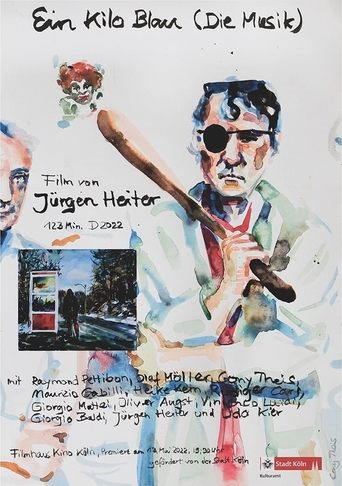 Ein Kilo Blau (Die Musik)
Film von
Jürgen Heiter
123 Min. D 2022
mit Raymond Pettibon, Olaf Möller, Cony Theis,
Maurizio Heike Kern,
Giorgio Oliver Augst,
Giorgio Baldi, Jürgen Heiter und Udo Kier
Filmhaus Kino Köln, Premiere am 2022, Uhr
gefördert von der Stadt Köln
Stadt Köln
Kulturamt
Cony Theis